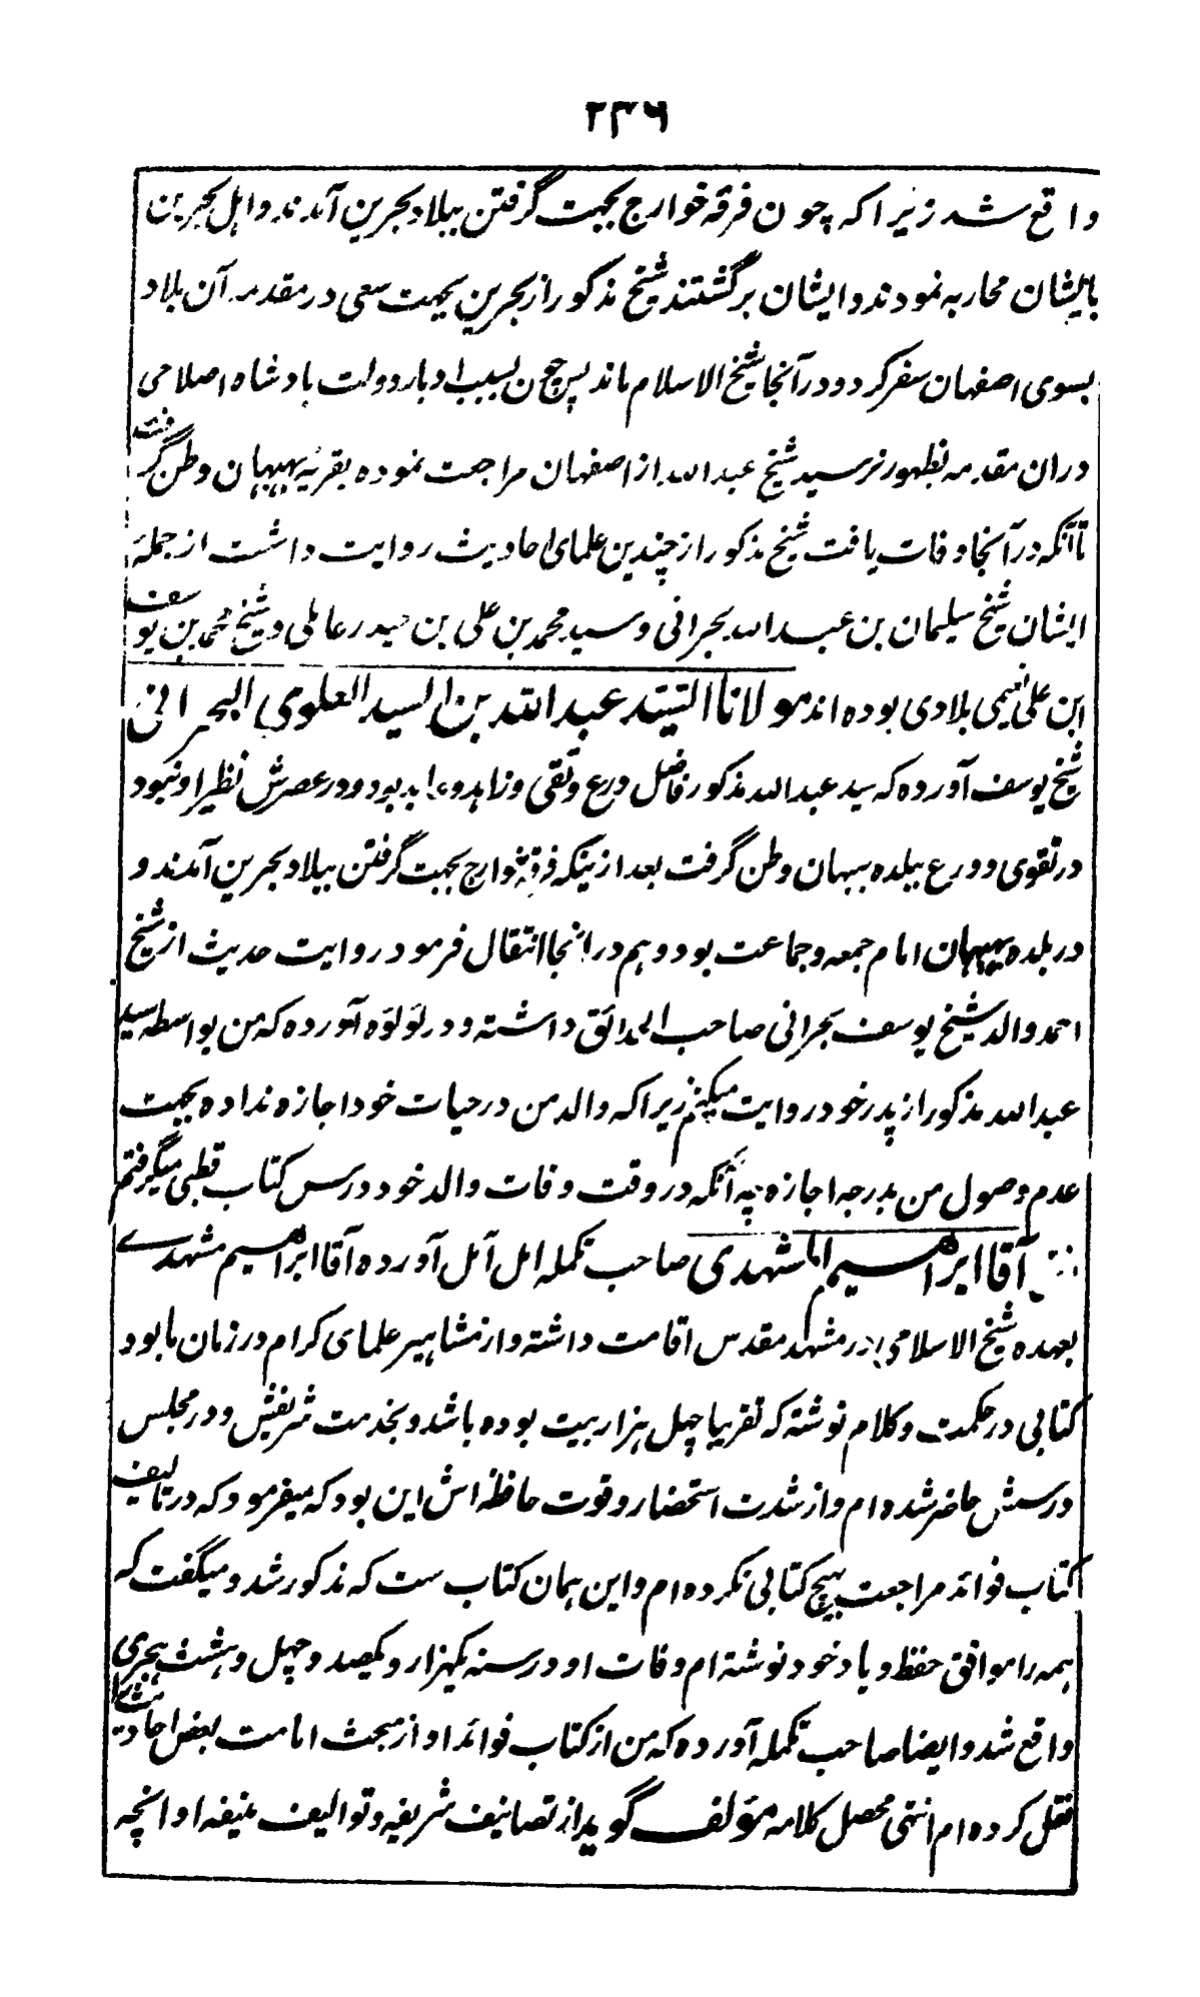 ۲۳۶
واقع شد زیرا که چون فرقه خوارج بجهت گرفتن ببلاد بحرین آمدند و اهل بحرین
بایشان محاربه نمودند و ایشان برگشتند شیخ مذکور از بحرین بجهت سعی در مقدمه آن بلاد
بسوی اصفهان سفر کرد و در آنجا شیخ الاسلام ماند پس چون بسبب ادبار دولت بادشاه اصلا می
دران مقدمه بظهور نرسید شیخ عبد الله از اصفهان مراجعت نموده بقریهٔ بهبهان وطن گرفت
تا آنکه در آنجا وفات یافت شیخ مذکور از چندین علمای احادیث روایت داشت از جملهٔ
ایشان شیخ سلیمان بن عبد الله بحرانی و سید محمد بن علی بن حیدر عاملی و شیخ محمد بن یوسف
ابن علی نعیمی بلادی بوده اند مولانا السّیّد عبد الله بن السید العلوی البحرانی
شیخ یوسف آورده که سید عبد الله مذکور فاضل ورع و تقی و زاهد و عابد بود و در عصرش نظیر او نبود
در تقوی و ورع ببلده بهبهان وطن گرفت بعد از ینکه فرقهٔ خوارج بجهت گرفتن ببلاد بحرین آمدند و
در بلده بهبهان امام جمعه و جماعت بود و هم در انجا انتقال فرمود روایت حدیث از شیخ
احمد والد شیخ یوسف بحرانی صاحب الحدائق داشته و در لؤلؤه آورده که من بواسطه سید
عبد الله مذکور از پدر خود روایت میکنم زیرا که والد من در حیات خود اجازه نداده بجهت
عدم وصول من بدرجه اجازه چه آنکه در وقت وفات والد خود درس کتاب قطبی میگرفتم
آقا ابراهیم المشهدی صاحب تکمله امل آمل آورده آقا ابراهیم مشهدی
بعهده شیخ الاسلامی در مشهد مقدس اقامت داشته و از مشاهیر علمای کرام در زمان ما بود
کتابی در حکمت و کلام نوشته که تقریبا چهل هزار بیت بوده باشد و بخدمت شریفش و در مجلس
درسش حاضر شده ام و از شدت استحضار و قوت حافظه اش این بود که میفرمود که در تالیف
کتاب فوائد مراجعت بهیچ کتابی نکرده ام و این همان کتاب ست که مذکور شد و میگفت که
همه را موافق حفظ و یاد خود نوشته ام وفات او در سنه یکهزار و یکصد و چهل و هشت هجری
واقع شد و ایضا صاحب تکمله آورده که من از کتاب فوائد او از مبحث امامت بعض احادیث
نقل کرده ام انتهی محصل کلامه مؤلف گوید از تصانیف شریفه و توالیف منیفه او انچه